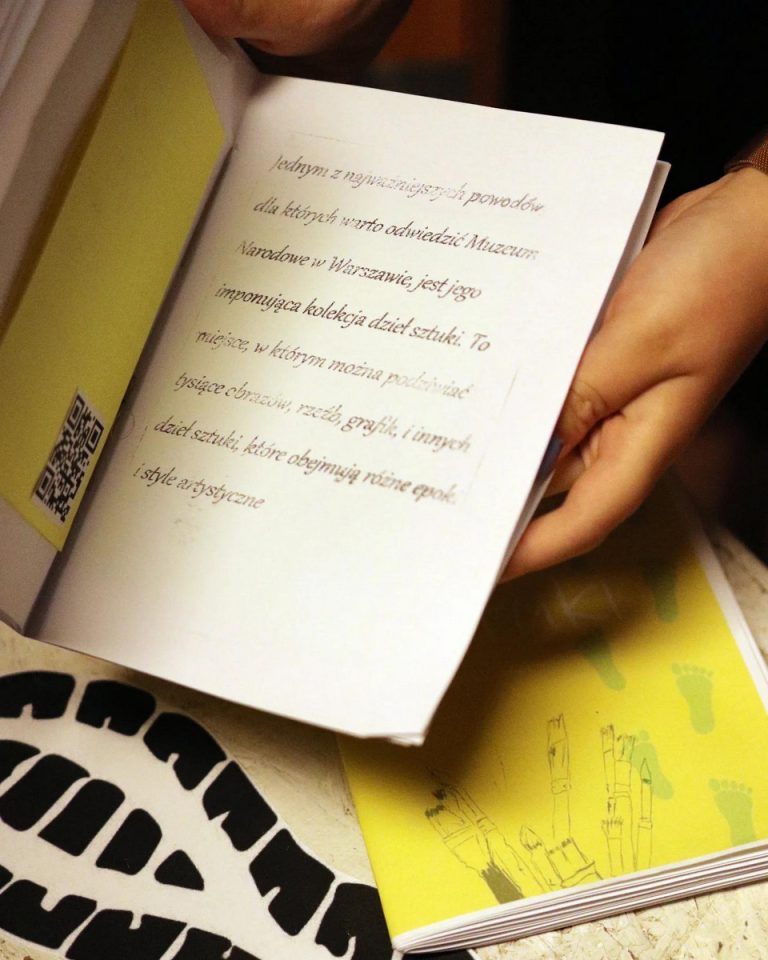 Jednym z najważniejszych powodów
dla których warto odwiedzić Muzeum
Narodowe w Warszawie, jest jego
imponująca kolekcja dzieł sztuki. To
miejsce, w którym można podziwiać
tysiące obrazów, rzeźb, grafik, i innych
dzieł sztuki, które obejmują różne epok
i style artystyczne